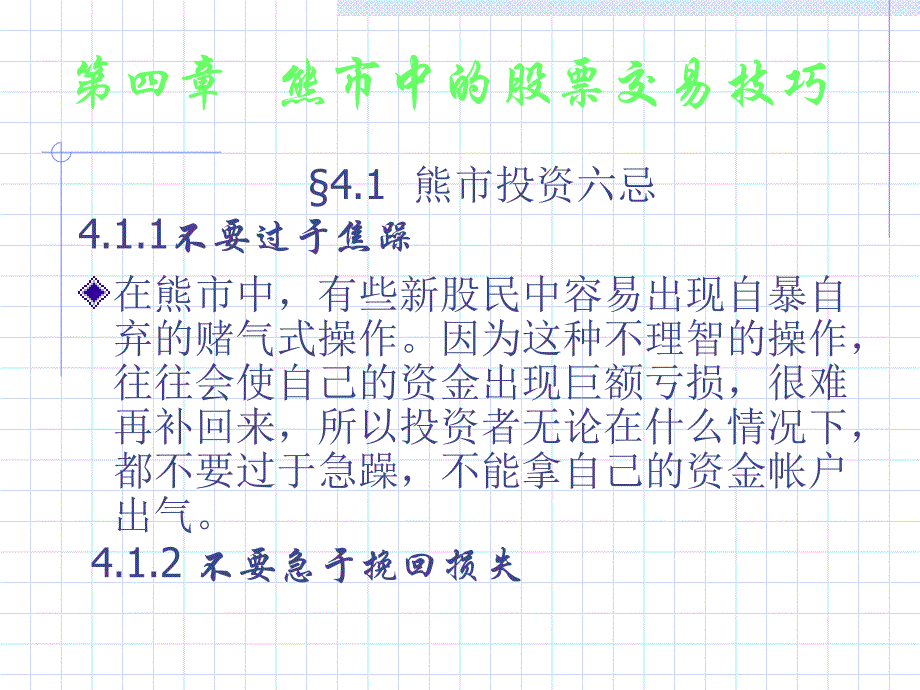 第四章 熊市中的股票交易技巧
§4.1 熊市投资六忌
4.1.1不要过于焦躁
在熊市中，有些新股民中容易出现自暴自
弃的赌气式操作。因为这种不理智的操作，
往往会使自己的资金出现巨额亏损，很难
再补回来，所以投资者无论在什么情况下，
都不要过于急躁，不能拿自己的资金帐户
出气。
4.1.2 不要急于挽回损失